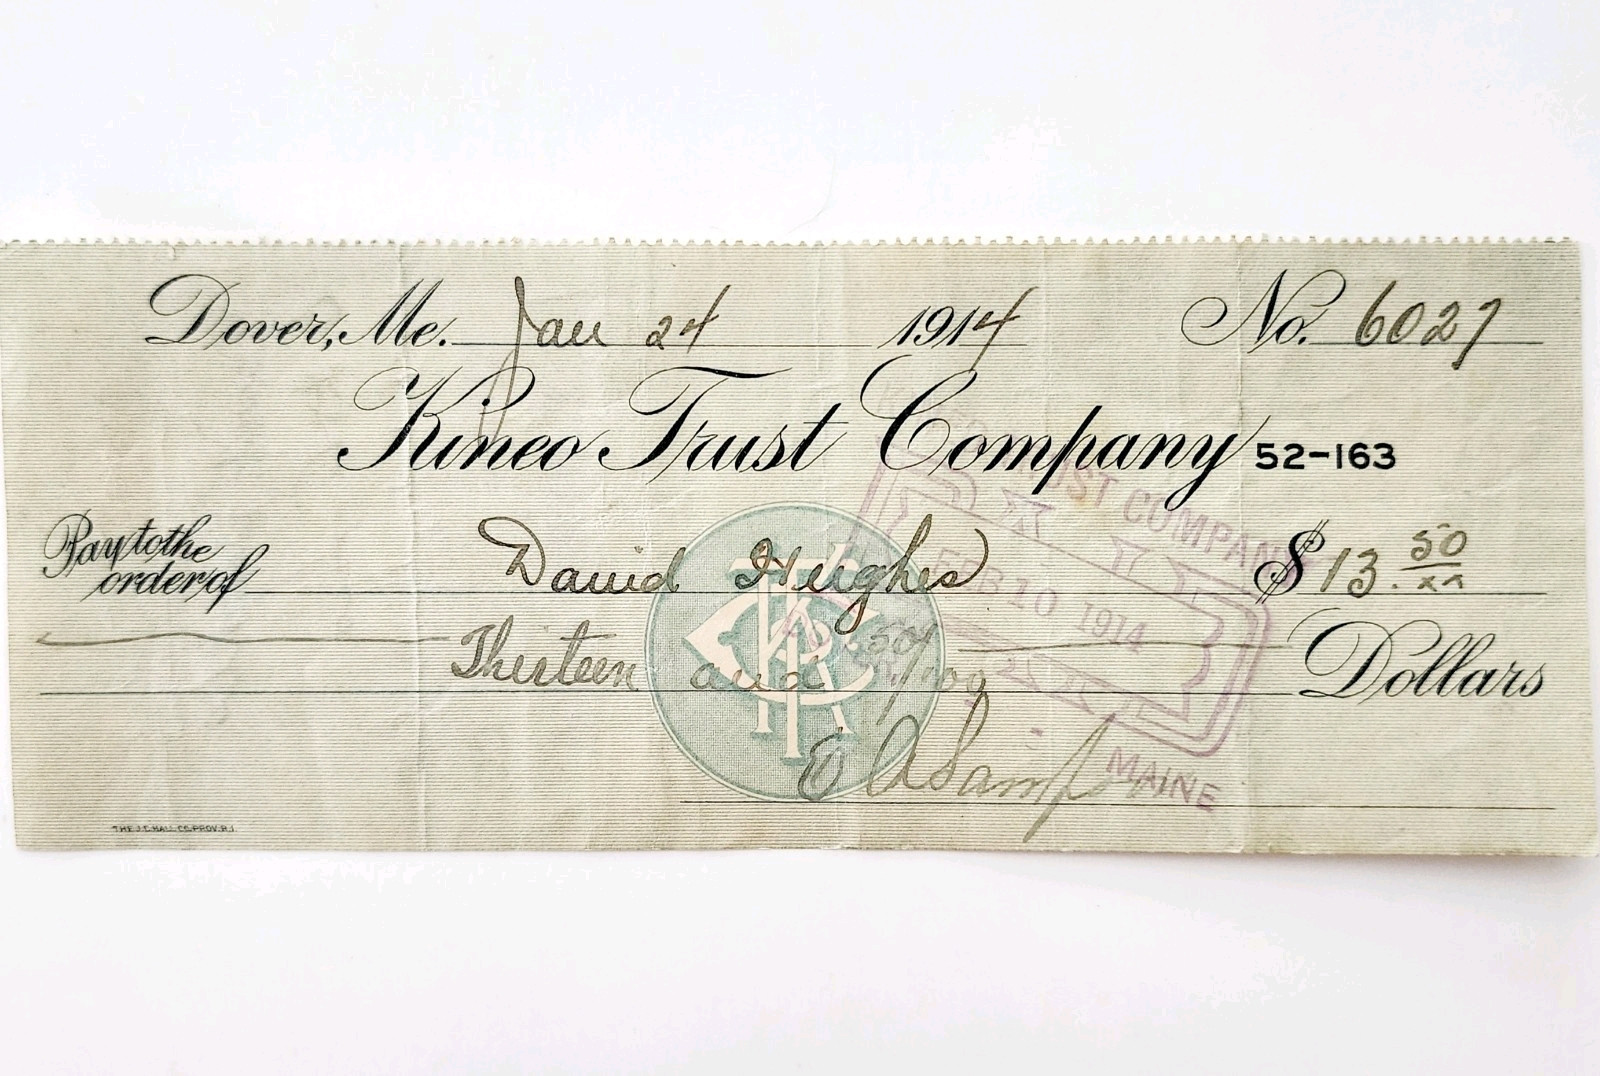 Dover, Me. Jan 24 1914 No. 6027
Kineo Trust Company 52-163
Pay to the order of David Hughes $13.50/xx
Thirteen and 50/100 Dollars
TRUST COMPANY
PAID
FEB 10 1914
MAINE
KTC
THE J.C. HALL CO. PROV. R.I.